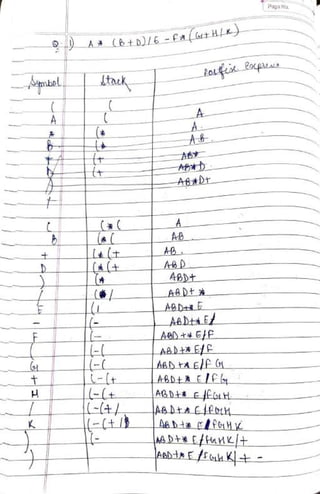 Page No.
Q 1) A * (B+D)/E - F*(G+H/K)
Symbol Stack Postfix Express
( (
A ( A
* (* A
B (* AB
+ (+ AB*
D (+ AB*D
) AB*D+
( (*( A
B (*( AB
+ (*(+ AB
D (*(+ ABD
) (* ABD+
/ (*/ ABD+*
E (/ ABD+*E
- (- ABD+*E/
F (- ABD+*E/F
( (-( ABD+*E/F
G (-( ABD+*E/FG
+ (-(+ ABD+*E/FG
H (-(+ ABD+*E/FGH
/ (-(+/ ABD+*E/FGH
K (-(+/ ABD+*E/FGHK
) (- ABD+*E/FGHK/+
) ABD+*E/FGHK/+-